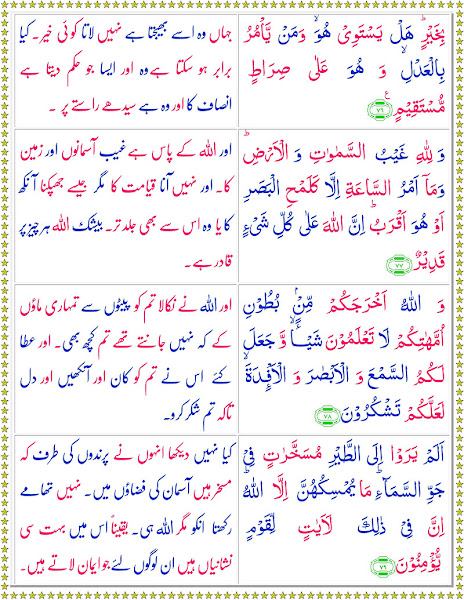 بِخَيْرٍ ۙ هَلْ يَسْتَوِىْ هُوَ ۙ وَمَنْ يَّاْمُرُ
بِالْعَدْلِ ۙ وَ هُوَ عَلٰى صِرَاطٍ
مُّسْتَقِيْمٍ ﴿٧٦﴾
جہاں وہ اسے بھیجتا ہے نہیں لاتا کوئی خیر۔ کیا
برابر ہو سکتا ہے وہ اور ایسا جو حکم دیتا ہے
انصاف کا اور وہ ہے سیدھے راستے پر ۔
وَ لِلّٰهِ غَيْبُ السَّمٰوٰتِ وَ الْاَرْضِ ؕ
وَمَاۤ اَمْرُ السَّاعَةِ اِلَّا كَلَمْحِ الْبَصَرِ
اَوْ هُوَ اَقْرَبُ ؕ اِنَّ اللّٰهَ عَلٰى كُلِّ شَىْءٍ
قَدِيْرٌ ﴿٧٧﴾
اور اللہ کے پاس ہے غیب آسمانوں اور زمین
کا۔ اور نہیں آنا قیامت کا مگر جیسے جھپکنا آنکھ
کا یا وہ اس سے بھی جلد تر۔ بیشک اللہ ہر چیز پر
قادر ہے۔
وَ اللّٰهُ اَخْرَجَكُمْ مِّنْۢ بُطُوْنِ
اُمَّهٰتِكُمْ لَا تَعْلَمُوْنَ شَيْـًٔا ۙ وَّ جَعَلَ
لَكُمُ السَّمْعَ وَ الْاَبْصَرَ وَ الْاَفْـِٕدَةَ ۙ
لَعَلَّكُمْ تَشْكُرُوْنَ ﴿٧٨﴾
اور اللہ نے نکالا تم کو پیٹوں سے تمہاری ماؤں
کے کہ نہیں جانتے تھے تم کچھ بھی۔ اور عطا
کئے اس نے تم کو کان اور آنکھیں اور دل
تاکہ تم شکر کرو۔
اَلَمْ يَرَوْا اِلَى الطَّيْرِ مُسَخَّرٰتٍ فِىْ
جَوِّ السَّمَآءِ ؕ مَا يُمْسِكُهُنَّ اِلَّا اللّٰهُ ؕ
اِنَّ فِىْ ذٰلِكَ لَاٰيٰتٍ لِّقَوْمٍ
يُّؤْمِنُوْنَ ﴿٧٩﴾
کیا نہیں دیکھا انہوں نے پرندوں کی طرف کہ
مسخر ہیں آسمان کی فضاؤں میں۔ نہیں تھامے
رکھتا انکو مگر اللہ ہی۔ یقیناً اس میں بہت سی
نشانیاں ہیں ان لوگوں لئے جو ایمان لاتے ہیں۔